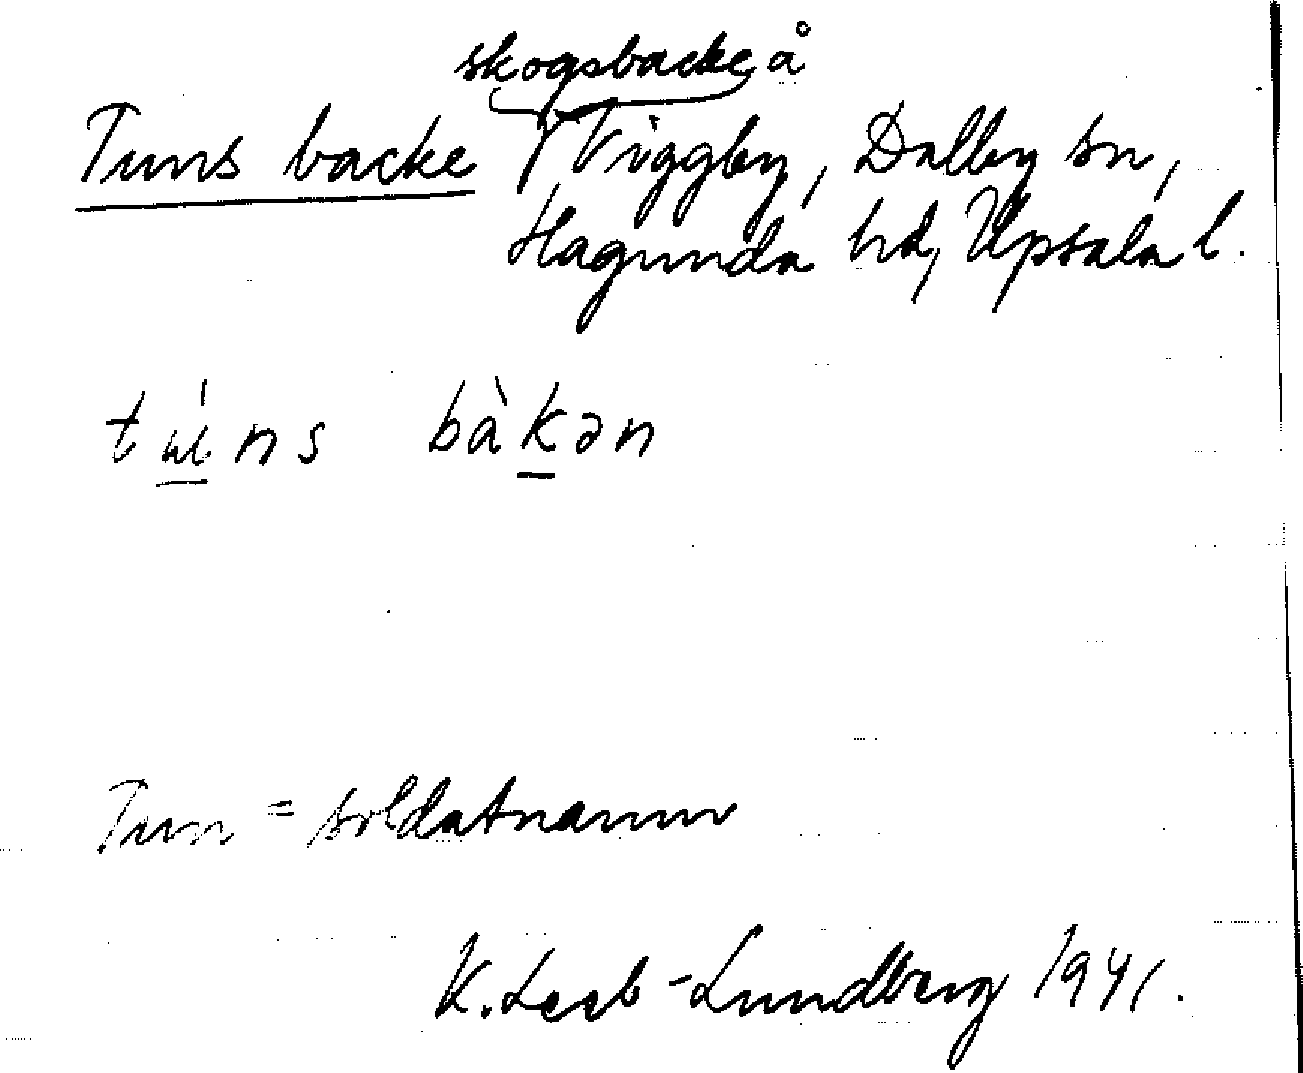 skogsbacke å
Tuns backe Viggby, Dalby sn,
Hagunda hd, Upsala l.
tú̱ns bàḵən
Tun = soldatnamn
K. Leeb-Lundberg 1941.